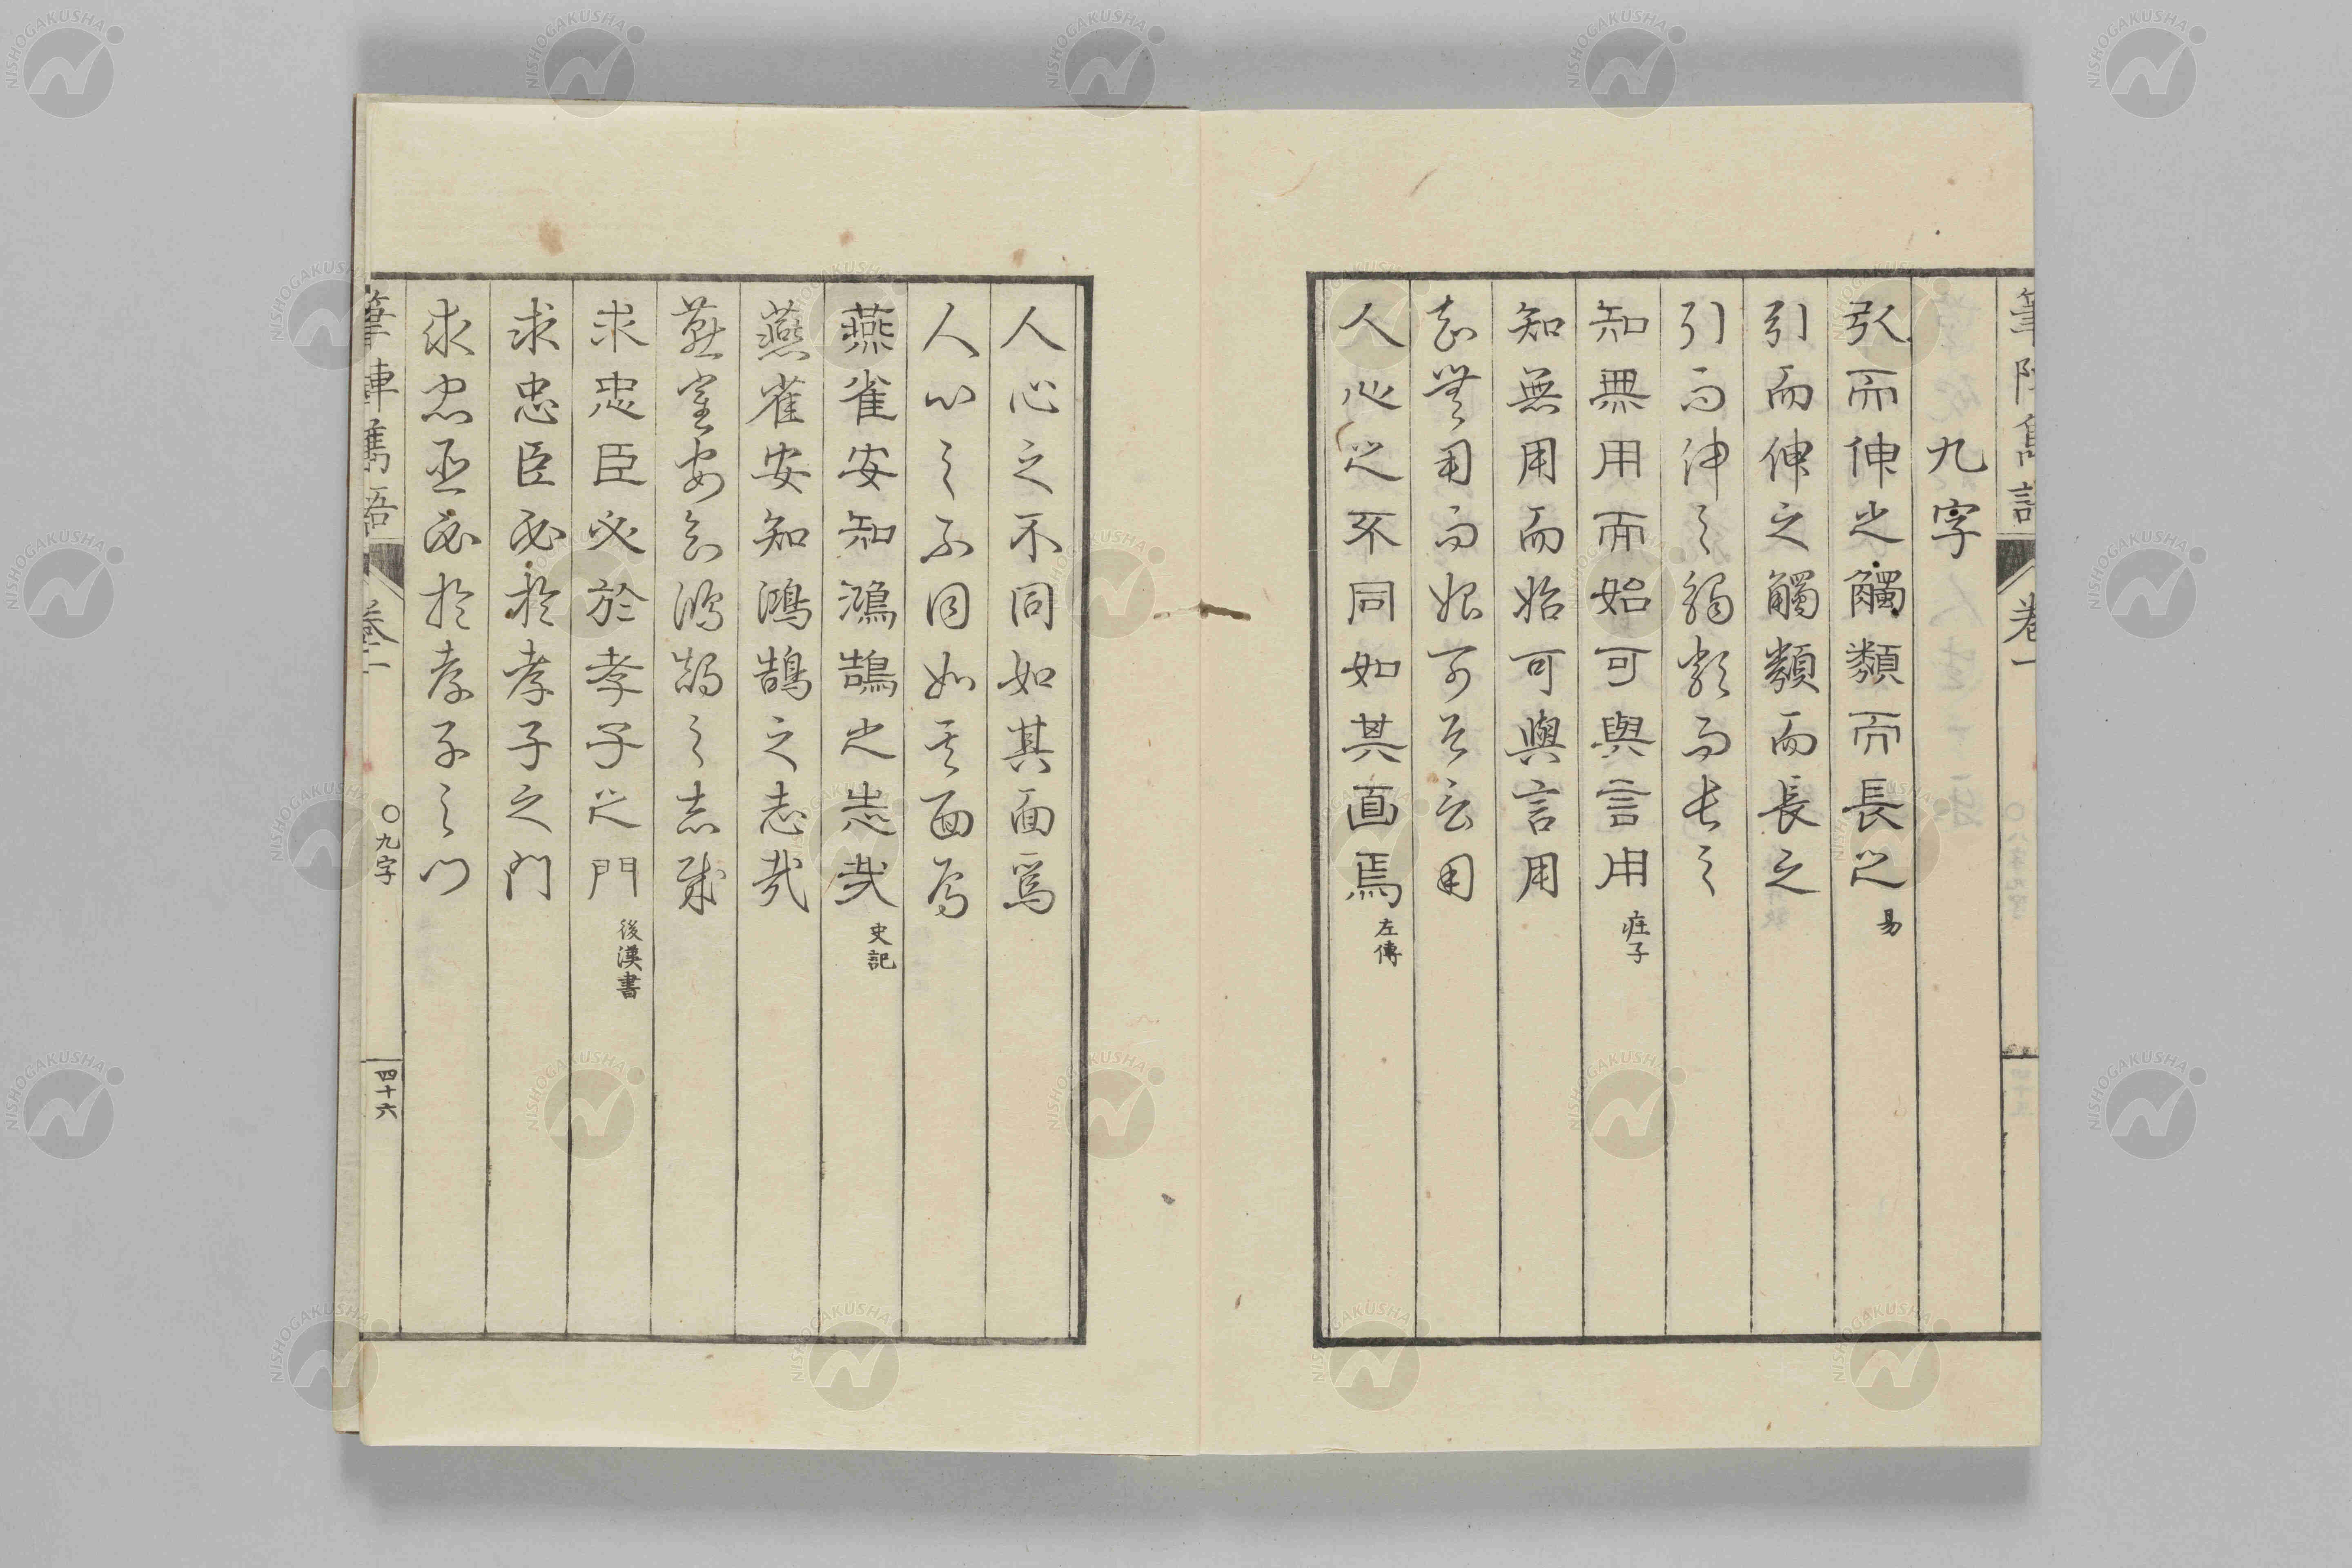 筆陣雋語
卷一
九字
引而伸之觸類而長之 易
引而伸之觸類而長之
引而伸之觸類而長之
知無用而始可與言用 莊子
知無用而始可與言用
知無用而始可與言用
人心之不同如其面焉 左傳
人心之不同如其面焉
人心之不同如其面焉
燕雀安知鴻鵠之志哉 史記
燕雀安知鴻鵠之志哉
燕雀安知鴻鵠之志哉
求忠臣必於孝子之門 後漢書
求忠臣必於孝子之門
求忠臣必於孝子之門
筆陣雋語
卷一
〇九字
四十六
NISHOGAKUSHA